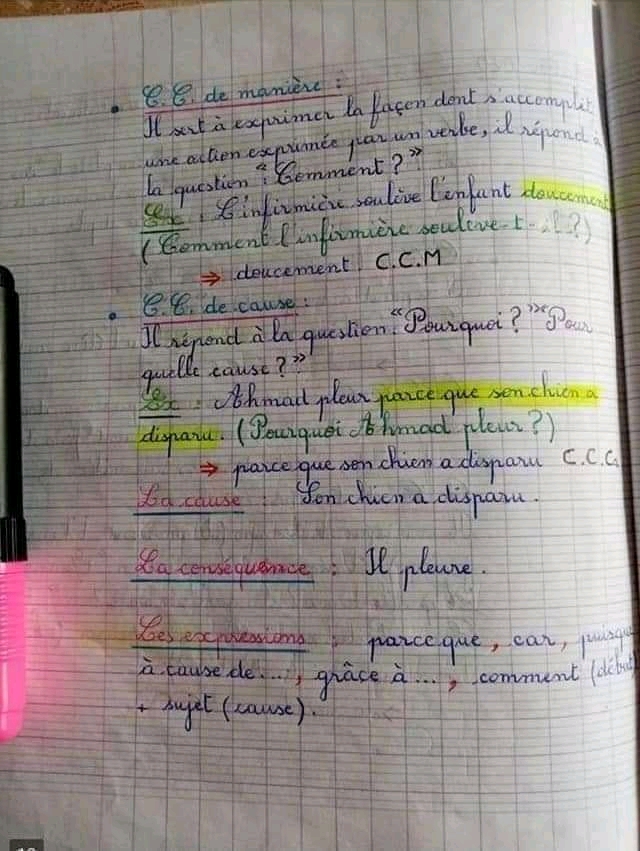 C.C. de manière :
Il sert à exprimer la façon dont s'accomplit
une action exprimée par un verbe, il répond à
la question "Comment ? "
Ex : L'infirmière soulève l'enfant doucement
(Comment l'infirmière soulève-t-il ?)
⇒ doucement C.C.M
C.C. de cause :
Il répond à la question : "Pourquoi ? " "Pour
quelle cause ? "
Ex : Ahmad pleur parce que son chien a
disparu. (Pourquoi Ahmad pleur ?)
⇒ parce que son chien a disparu C.C.C
La cause : Son chien a disparu.
La conséquence : Il pleure.
Les expressions : parce que, car, puisque
à cause de..., grâce à..., comment (début)
+ sujet (cause).